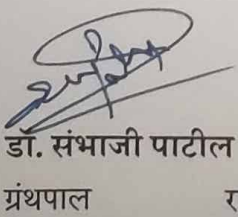 डॉ. संभाजी पाटील
ग्रंथपाल र